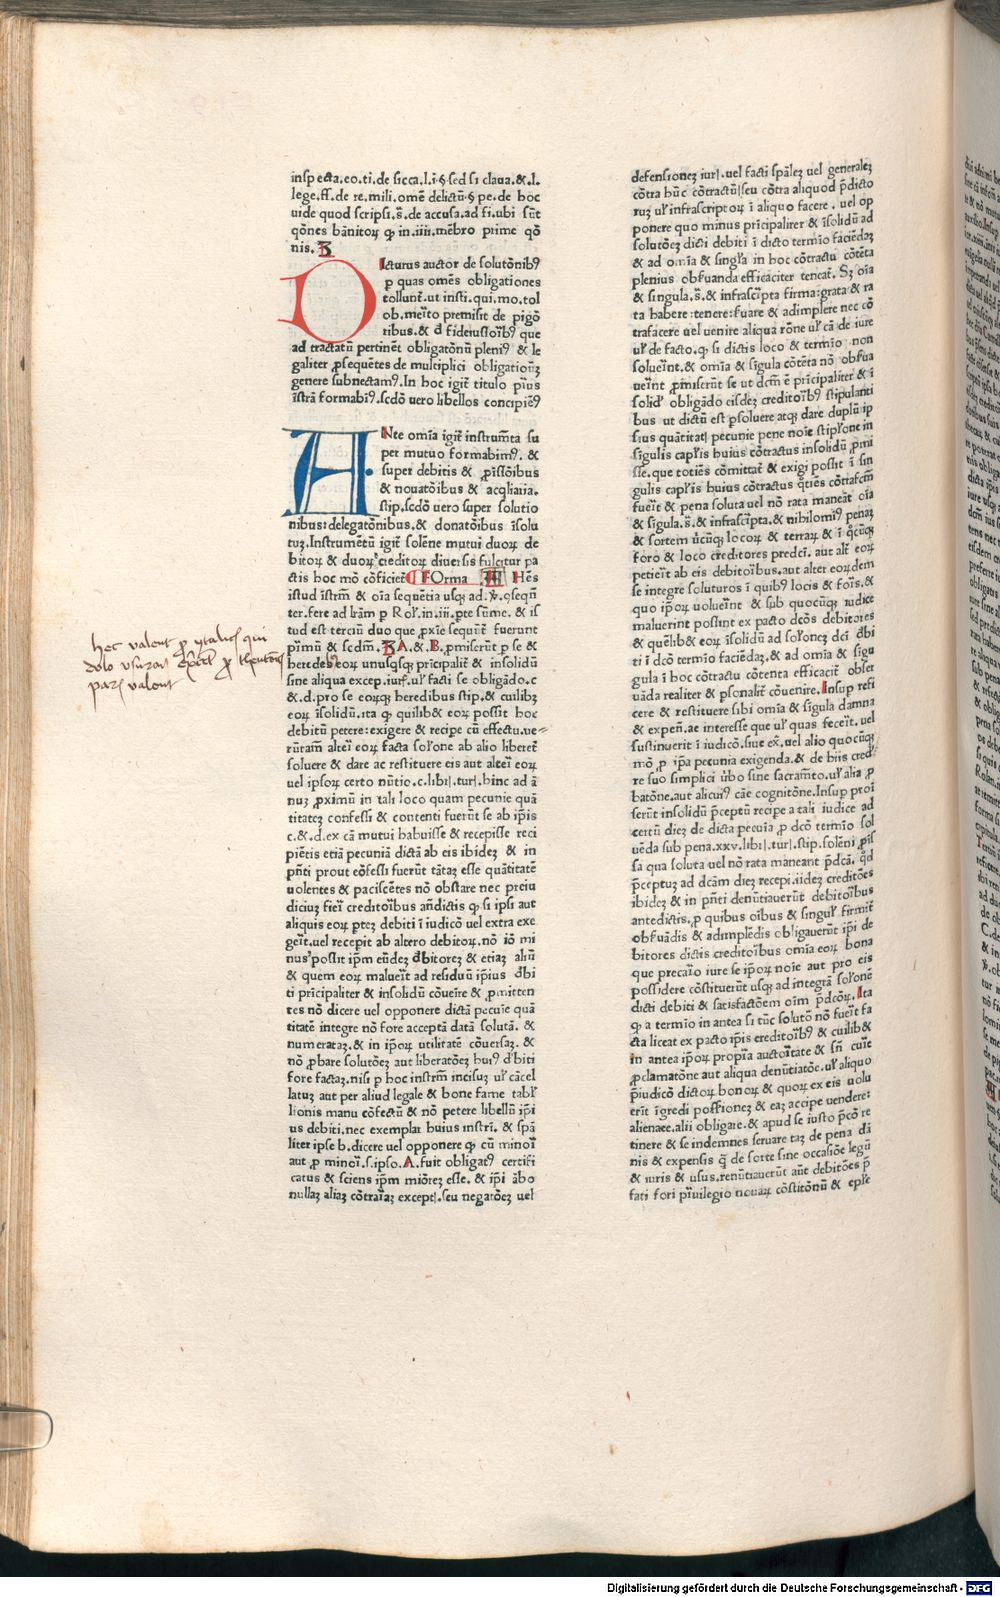 inspecta.eo.ti.de sicca.l.i.§ sed si claua.&.l.
lege.ff.de re.mili.omē delictū.§ pe.de hoc
uide quod scripsi.s̄.de accusa.ad fi.ubi sūt
qōnes bānitoꝝ ꝙ in.iiii.mēbro prime qō
nis.
DIcturus auctor de solutōnibꝰ
p quas omēs obligationes
tollunt̄.ut insti.qui.mo.tol
ob.meīto premisit de pigō
ribus.& đ fideiussoībꝰ que
ad tractatū pertinēt obligatōnū pleniꝰ & le
galiter ꝓsequētes de multiplici obligationū
genere subnectamꝰ.In hoc igit̄ titulo pīus
īstrā formabiꝰ.scdō uero libellos concipiēꝰ
ANte omīa igit̄ instrum̄ta su
per mutuo formabimꝰ. &
super debitis & ꝓissōibus
& nouatōibus & acqliaria.
stip.scdō uero super solutio
nibus: delegatōnibus.& donatōibus īsolu
tuꝫ.Instrumētū igit̄ solēne mutui duoꝝ de
bitoꝝ & duoꝝ creditoꝝ diuersis fulcitur pa
ctis hoc mō cōficiet̄ FOrma Hēs
istud istrm̄ & oīa sequētia usqꝫ ad.
ter.fere ad lrām p Rol.in.iii.pte sūme. & is
tud est terciū duo que ꝓxīe sequūt̄ fuerunt
pīmū & scdm̄. A.& B.ꝓmiserūt p se &
heredes eoꝝ unusqsqꝫ prīcipalit̄ & insolidū
sine aliqua excep.iurꝭ.ul̄ facti se obligādo.c
& .d.pro se eorqꝫ heredibus stip.& cuilibꝫ
eoꝝ īsolidū.ita ꝙ quilib& eoꝝ possit hoc
debitū petere:exigere & recipe cū effectu.ue
rūtam̄ alteī eoꝝ facta solōne ab alio liberet̄
soluere & dare ac restituere eis aut alteī eoꝝ
uel ipsoꝝ certo nūtio.c.libꝭ.turꝭ.hinc ad ā
nuꝫ ꝓximū in tali loco quam pecunie quā
titateꝫ confessi & contenti fuerūt se ab ip̄is
c.& .d.ex cā mutui habuisse & recepisse reci
piētis etiā pecuniā dictā ab eis ibideꝫ & in
pn̄ti prout cōfessi fuerūt tātaꝫ esse quātitatē
uolentes & paciscētes nō obstare nec preiu
diciuꝫ fieī creditoībus an̄dictis ꝙ si ipsi aut
aliquis eoꝝ pteꝫ debiti ī iudicō uel extra exe
geīt.uel recepit ab altero debitoꝝ.nō iō mi
nus possit ip̄m eūdeꝫ đbitoreꝫ & etiaꝫ aliū
& quem eoꝝ malueīt ad residuū ip̄ius đbi
ti prīcipaliter & insolidū cōueīre & ꝓmitten
tes nō dicere uel opponere dictā pecuīe quā
titatē integre nō fore acceptā datā solutā. &
numerataꝫ.& in ip̄oꝝ utilitatē cōuersaꝫ. &
nō ꝓbare solutōeꝫ aut liberatōeꝫ huiꝰ đbiti
fore factaꝫ.nisi p hoc instrm̄ incisuꝫ ul̄ cācel
latuꝫ aut per aliud legale & bone fame tabl̄
lionis manu cōfectū & nō petere libellū ip̄i
us debiti.nec exemplar huius instrī. & spā
liter ipse b.dicere uel opponere ꝙ cū minoī
aut ꝓ minoī.s.ipso.A.fuit obligatꝰ certifi
catus & sciens ip̄m miōreꝫ esse. & ip̄i ābo
nullaꝫ aliaꝫ cōtraīaꝫ exceptꝭ.seu negatōeꝫ uel
hec valent p ytalicis qui
dolo
pars valent
defensioneꝫ iurꝭ.uel facti spāleꝫ uel generaleꝫ
cōtra hūc cōtractū seu cōtra aliquod p̄dicto
ruꝫ ul̄ infrascriptoꝝ ī aliquo facere . uel op
ponere quo minus prīcipalirer & īsolidū ad
solutōeꝫ dicti debiti ī dicto termīo faciēdaꝫ
& ad omīa & singl̄a in hoc cōtractu cōtēta
plenius obsuanda efficaciter teneat̄. Sꝫ oīa
& singula.s̄.& infrascīpta firma:grata & ra
ta habere:tenere:suare & adimplere nec cō
trafacere uel uenire aliqua rōne ul̄ cā de iure
ul̄ de facto.ꝙ si dictis loco & termīo non
solueīnt.& omīa & sīgula cōtēta nō obsua
ueīnt ꝓmiserūt se ut dcm̄ ē prīcipaliter & ī
solid obligādo eisdeꝫ creditoībꝰ stipulanti
bus ut dictū est psoluere atqꝫ dare duplū ip
sius quātitatꝭ pecunie pene noīe stiplōne in
sīgulis capl̄is huius cōtractus insolidū ꝓmi
sse.que totiēs cōmittat̄ & exigi possit ī sin
gulis capl̄is huius cōtractus qtiēs cōtrafcm̄
fueīt & pena soluta uel nō rata maneāt oīa
& sīgula.s̄.& infrascīpta.& nihilomiꝰ penaꝫ
& sortem ūcūqꝫ locoꝝ & terraꝝ & ī qcūqꝫ
foro & loco creditores predcī. aut alt̄ eoꝝ
petieīt ab eis debitoībus.aut alter eorꝝdem
se integre soluturos ī quibꝰ locis & foīs.&
quo ip̄oꝝ uolueīnt & sub quocūqꝫ iudice
maluerint possint ex pacto dcōs debitores
& quēlib& eoꝝ īsolidū ad solōneꝫ dcī đbi
ti ī dcō termīo faciēdaꝫ.& ad omīa & sīgu
gula ī hoc cōtractu cōtenta efficacit̄ obser
uāda realiter & psonalit̄ cōuenire.Insup refi
cere & restituere sibi omīa & sīgula damna
& expen̄.ac interesse que ul̄ quas feceīt.uel
sustinuerit ī iudicō.siue ex̄.uel alio quocūqꝫ
mō ꝓ ip̄a pecunia exigenda.& de hiis cred
re suo simplici u̇bo sine sacram̄to.ul̄ alia ꝓ
batōne.aut alicuiꝰ cāe cognitōne.Insup proī
serūt insolidū p̄ceptū recipe a tali iudice ad
certū dieꝫ de dicta pecuīa ꝓ dcō termīo sol
uēda sub pena.xxv.libꝭ.turꝭ.stip.solēni ꝓis
sa qua soluta uel nō rata maneant p̄dcā. qd̄
p̄ceptuꝫ ad dcām dieꝫ recepi.iideꝫ creditōes
ibideꝫ & in pn̄ti denūtiauerūt debitoībus
antedictis.p quibus oībus & singul̄ firmit̄
obsuādis & adimplēdis obligauerūt ip̄i de
bitores dictis creditoībus omīa eoꝝ bona
que precaīo iure se ip̄oꝝ noīe aut pro eis
possidere cōstituerūt usqꝫ ad integrā solōnē
dicti debiti & satisfactōem oīm p̄dcōꝝ.Ita
ꝙ a termīo in antea si tūc solutō nō fueīt fa
cta liceat ex pacto ip̄is creditoībꝰ & cuilib&
in antea ip̄oꝝ propīa auctoītate & sn̄ cuīe
ꝓclamatōne aut aliqua denūtiatōe.ul̄ aliquo
p̄iudicō dictoꝝ bonoꝝ & quoꝝ ex eis uolu
erīt īgredi possioneꝫ & eaꝫ accipe uendere:
alienare.alii obligare.& apud se iusto p̄cō re
tinere & se indemnes seruare taꝫ de pena dā
nis & expensis q̄ de sorte sine occasiōe legū
& iuris & usus.renūtiauerūt aūt debitōes p̄
fati fori pīuilegio nouaꝝ cōstitōnū & epl̄e
Digitalisierung gefördert durch die Deutsche Forschungsgemeinschaft - DFG